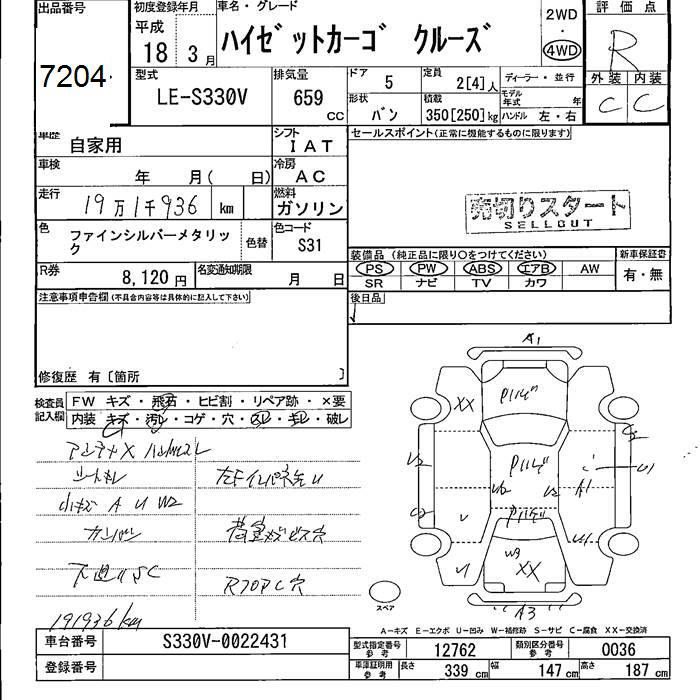 出品番号
7204
初度登録年月
平成
18 3月
車名・グレード
ハイゼットカーゴ クルーズ
2WD
・
4WD
評価点
R
外装 内装
C C
型式
LE-S330V
排気量
659
CC
ドア
5
定員
2[4]人
ディーラー・並行
形状
バン
積載
350[250]kg
モデル年式 年
ハンドル 左・右
車歴
自家用
シフト
IAT
セールスポイント(正常に機能するものに限ります)
車検
年 月( 日)
冷房
AC
走行
19万1千936 km
燃料
ガソリン
売切りスタート
SELLOUT
色
ファインシルバーメタリック
色替
色コード
S31
装備品 (純正品に限り○をつけてください)
新車保証書
PS PW ABS エアB AW
SR ナビ TV カワ
有・無
R券
8,120円
名変通知期限
月 日
後日品
注意事項申告欄(不具合内容等は具体的に記入して下さい)
修復歴 有〔箇所 〕
検査員記入欄
FW キズ・飛石・ヒビ割・リペア跡・×要
内装 キズ・汚レ・コゲ・穴・スレ・キレ・破レ
小キズ A U W2
下廻りSC
191936km
A1
XX
A1
W3
XX
A3
スペア
A-キズ E-エクボ U-凹み W-補修跡 S-サビ C-腐食 XX-交換済
車台番号
S330V-0022431
登録番号
型式指定番号
参考
12762
類別区分番号
参考
0036
車庫証明用
参考
長さ 339 cm
幅 147 cm
高さ 187 cm